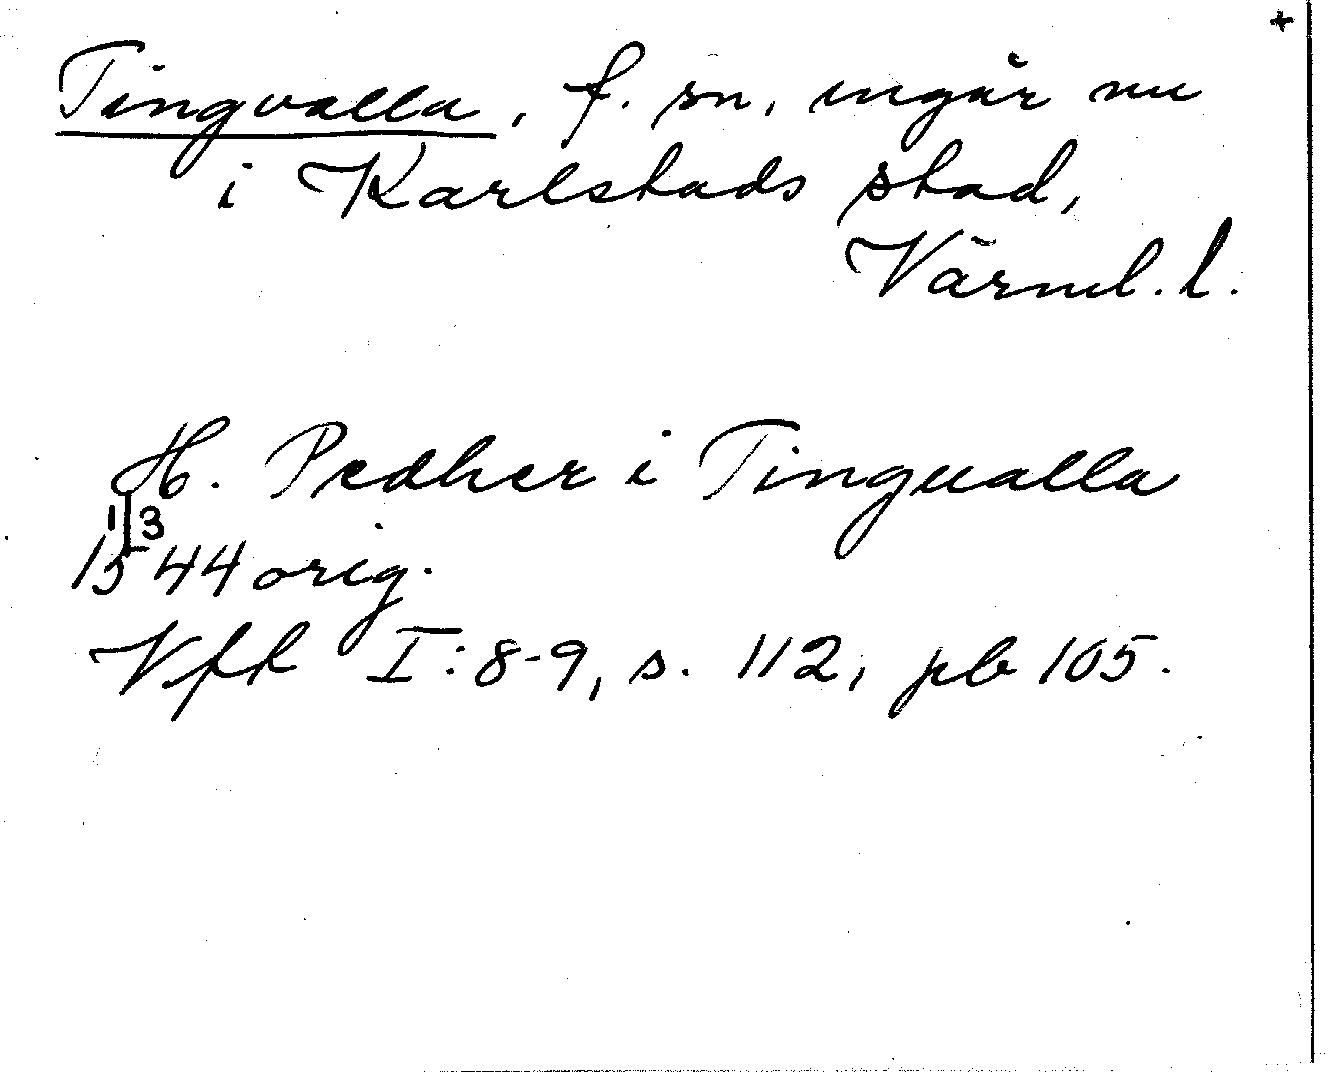 +
Tingvalla, f. sn, ingår nu
i Karlstads stad,
Värml. l.
H. Pedher i Tingualla
1/3
1544 orig.
VfR I:8-9, s. 112, pb 105.